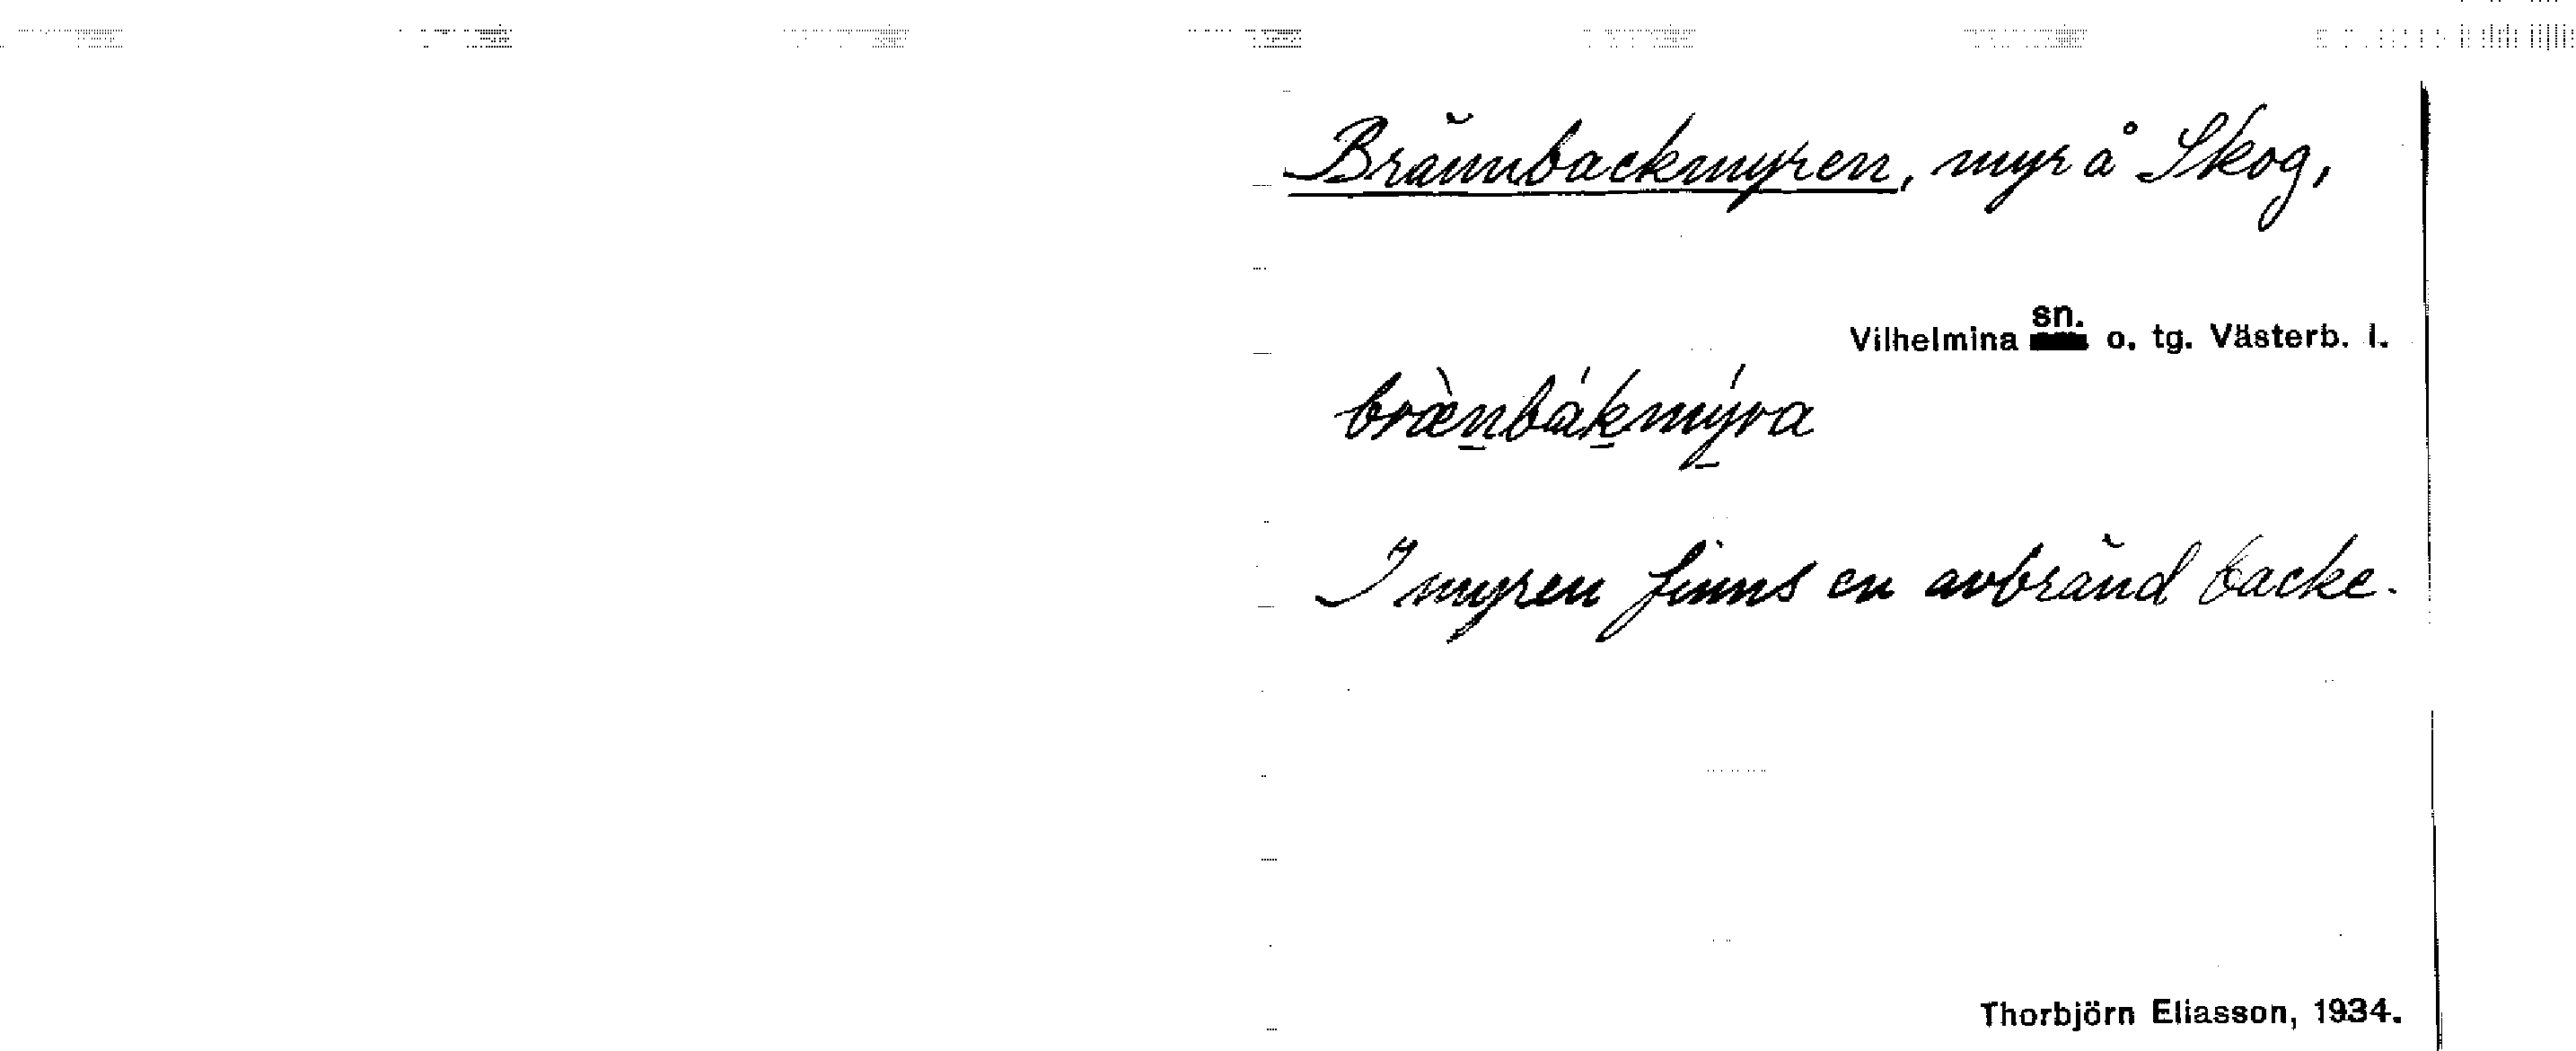 Brännbackmyren, myr å Skog,
Vilhelmina sn. o. tg. Västerb. l.
bræ̀nbákmýra
I myren finns en avbränd backe.
Thorbjörn Eliasson, 1934.